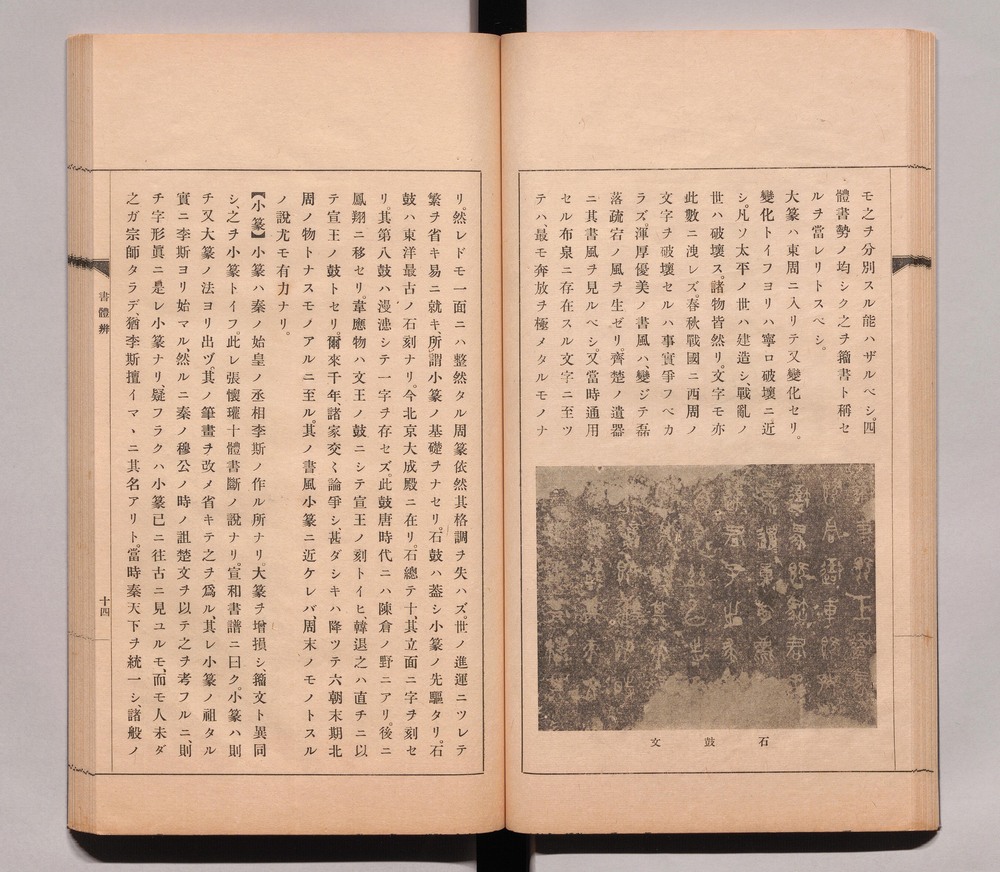 モ之ヲ分別スル能ハザルベシ。四
體書勢ノ均シク之ヲ籀書ト稱セ
ルヲ當レリトスベシ。
大篆ハ東周ニ入リテ又變化セリ。
變化トイフヨリハ寧ロ破壞ニ近
シ。凡ソ太平ノ世ハ建造シ、戰亂ノ
世ハ破壞ス。諸物皆然リ。文字モ亦
此數ニ洩レズ。春秋戰國ニ西周ノ
文字ヲ破壞セルハ事實爭フベカ
ラズ。渾厚優美ノ書風ハ、變ジテ磊
落疏宕ノ風ヲ生ゼリ。齊楚ノ遺器
ニ其書風ヲ見ルベシ。又當時通用
セル布泉ニ存在スル文字ニ至ツ
テハ、最モ奔放ヲ極メタルモノナ
石鼓文
リ。然レドモ一面ニハ整然タル周篆依然其格調ヲ失ハズ。世ノ進運ニツレテ
繁ヲ省キ易ニ就キ、所謂小篆ノ基礎ヲナセリ。石鼓ハ蓋シ小篆ノ先驅タリ。石
鼓ハ東洋最古ノ石刻ナリ。今北京大成殿ニ在リ。石總テ十、其立面ニ字ヲ刻セ
リ。其第八鼓ハ漫漶シテ一字ヲ存セズ。此鼓唐時代ニハ陳倉ノ野ニアリ。後ニ
鳳翔ニ移セリ。韋應物ハ文王ノ鼓ニシテ宣王ノ刻トイヒ、韓退之ハ直チニ以
テ宣王ノ鼓トセリ。爾來千年、諸家交〻論爭シ、甚ダシキハ降ツテ六朝末期北
周ノ物トナスモノアルニ至ル。其ノ書風小篆ニ近ケレバ、周末ノモノトスル
ノ說尤モ有力ナリ。
【小篆】小篆ハ秦ノ始皇ノ丞相李斯ノ作ル所ナリ。大篆ヲ增損シ、籀文ト異同
シ、之ヲ小篆トイフ。此レ張懷瓘十體書斷ノ說ナリ。宣和書譜ニ曰ク。小篆ハ則
チ又大篆ノ法ヨリ出ヅ。其ノ筆畫ヲ改メ省キテ之ヲ爲ル、其レ小篆ノ祖タル
實ニ李斯ヨリ始マル、然ルニ秦ノ穆公ノ時ノ詛楚文ヲ以テ之ヲ考フルニ、則
チ字形眞ニ是レ小篆ナリ、疑フラクハ小篆已ニ往古ニ見ユルモ、而モ人未ダ
之ガ宗師タラデ、猶李斯擅イマヽニ其名アリト。當時秦天下ヲ統一シ、諸般ノ
書體辨
十四